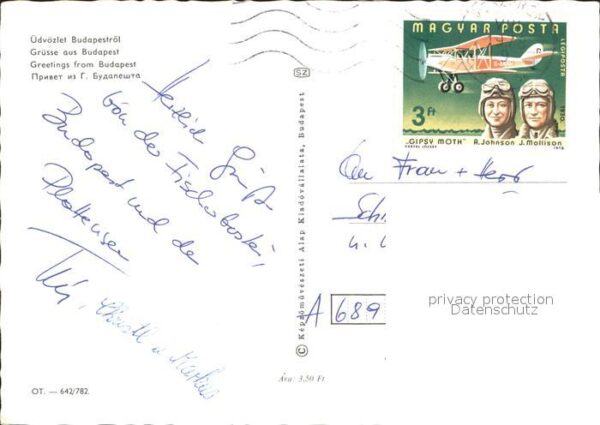 Üdvözlet Budapestről
Grüsse aus Budapest
Greetings from Budapest
Привет из Г. Будапешта
SZ
MAGYAR POSTA
LÉGIPOSTA
1930
3 Ft
"GIPSY MOTH" A. Johnson J. Mollison
1978
Grüße
von der Fischerbastei,
Budapest und de
Plattensee
An Frau + Herb
A 689
privacy protection
Datenschutz
© Képzőművészeti Alap Kiadóvállalata, Budapest
Ára: 3,50 Ft
OT. — 642/782.